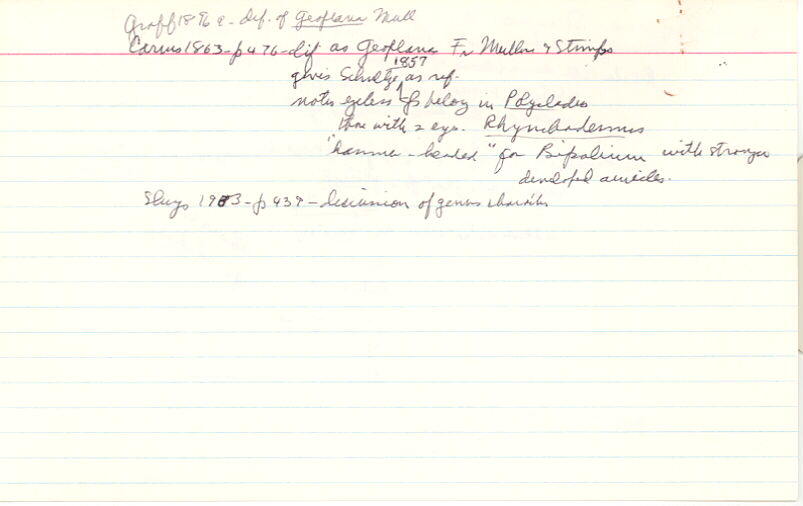 Graff 1896 a - def. of Geoplana Mull
Carus 1863 - p 476 - dif as Geoplana Fr Muller & Stimps
1857
gives Schultze as ref.
notes eyeless spp belong in Polycladus
those with 2 eyes. Rhynchodesmus
"hammer-headed" for Bipalium with stronger
developed auricles.
Sluys 1983 - p 439 - discussion of genus